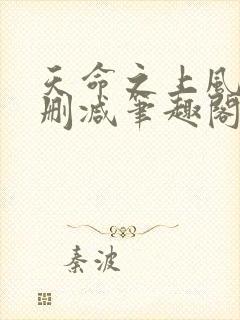 天命之上风
删减笔趣阁
秦波